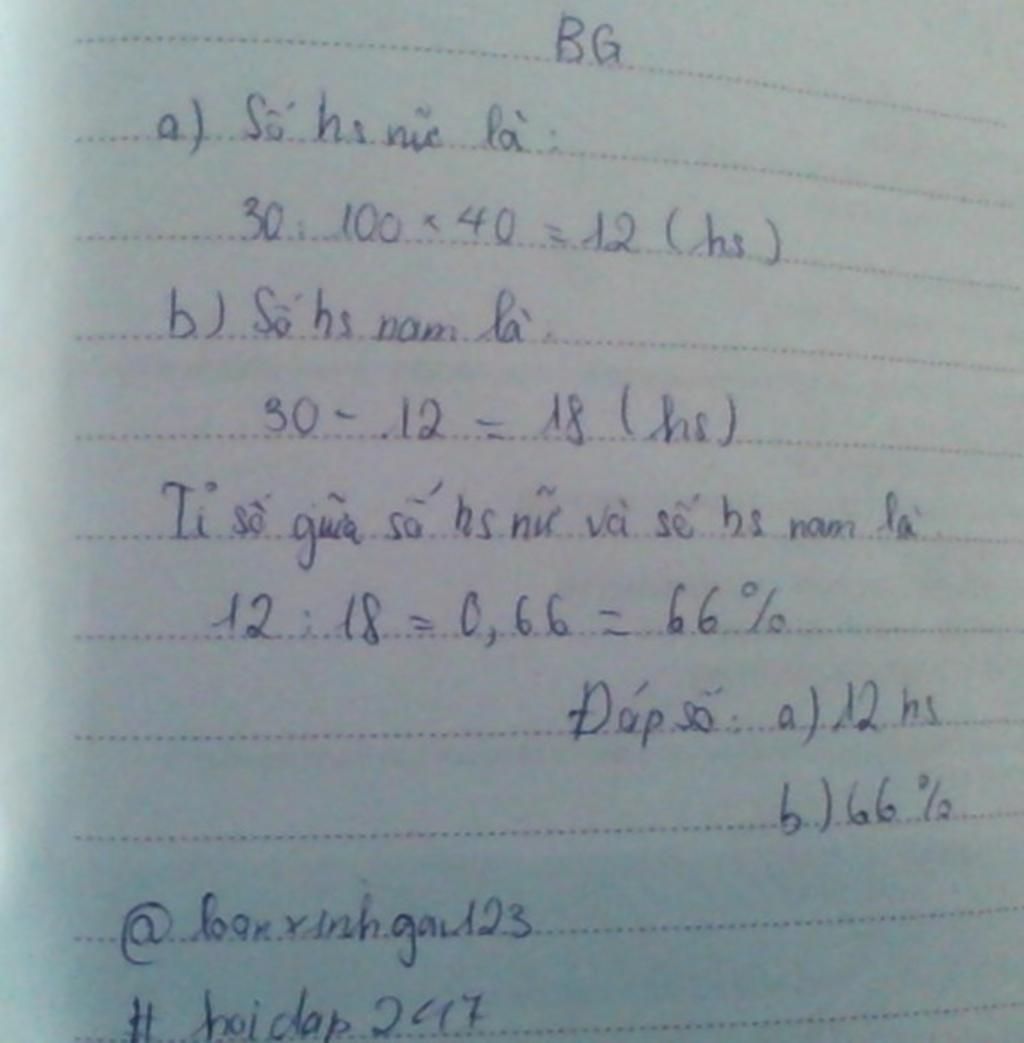 BG
a) Số hs nữ là:
30 : 100 × 40 = 12 (hs)
b) Số hs nam là:
30 - 12 = 18 (hs)
Tỉ số giữa số hs nữ và số hs nam là
12 : 18 = 0,66 = 66%
Đáp số: a) 12 hs
b) 66%
@ loanxinhgau123
# hoidap 247